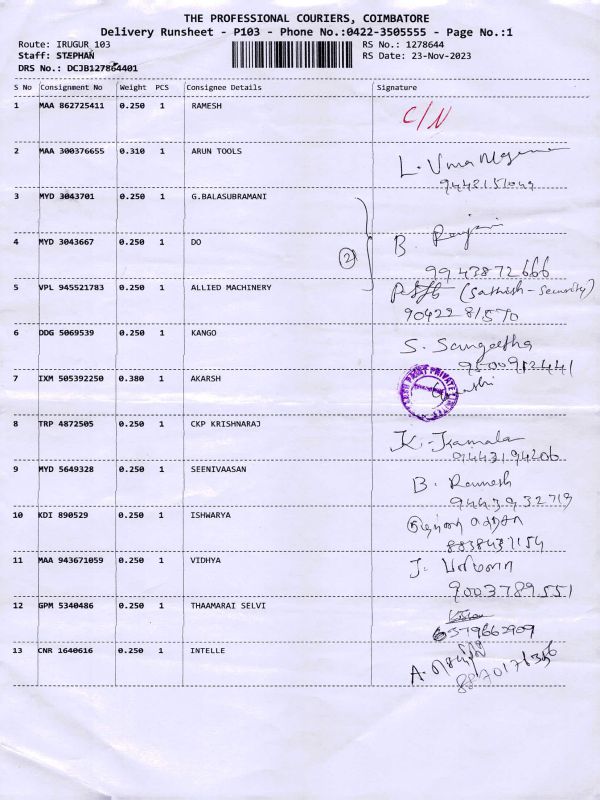 THE PROFESSIONAL COURIERS, COIMBATORE
Delivery Runsheet - P103 - Phone No.:0422-3505555 - Page No.:1
Route: IRUGUR 103 RS No.: 1278644
Staff: STEPHAN RS Date: 23-Nov-2023
DRS No.: DCJB127864401
S No Consignment No Weight PCS Consignee Details Signature
1 MAA 862725411 0.250 1 RAMESH C/N
2 MAA 300376655 0.310 1 ARUN TOOLS L. Uma
3 MYD 3043701 0.250 1 G.BALASUBRAMANI
4 MYD 3043667 0.250 1 DO B.
(2)
9943872666
5 VPL 945521783 0.250 1 ALLIED MACHINERY (Sathish-Security)
90422 81570
6 DDG 5069539 0.250 1 KANGO S. Sangeetha
9500912441
7 IXM 505392250 0.380 1 AKARSH
8 TRP 4872505 0.250 1 CKP KRISHNARAJ K. Kamala
9443194206
9 MYD 5649328 0.250 1 SEENIVAASAN B. Ramesh
9443932719
10 KDI 890529 0.250 1 ISHWARYA
8838437154
11 MAA 943671059 0.250 1 VIDHYA J.
9003789551
12 GPM 5340486 0.250 1 THAAMARAI SELVI
6379662909
13 CNR 1640616 0.250 1 INTELLE A.